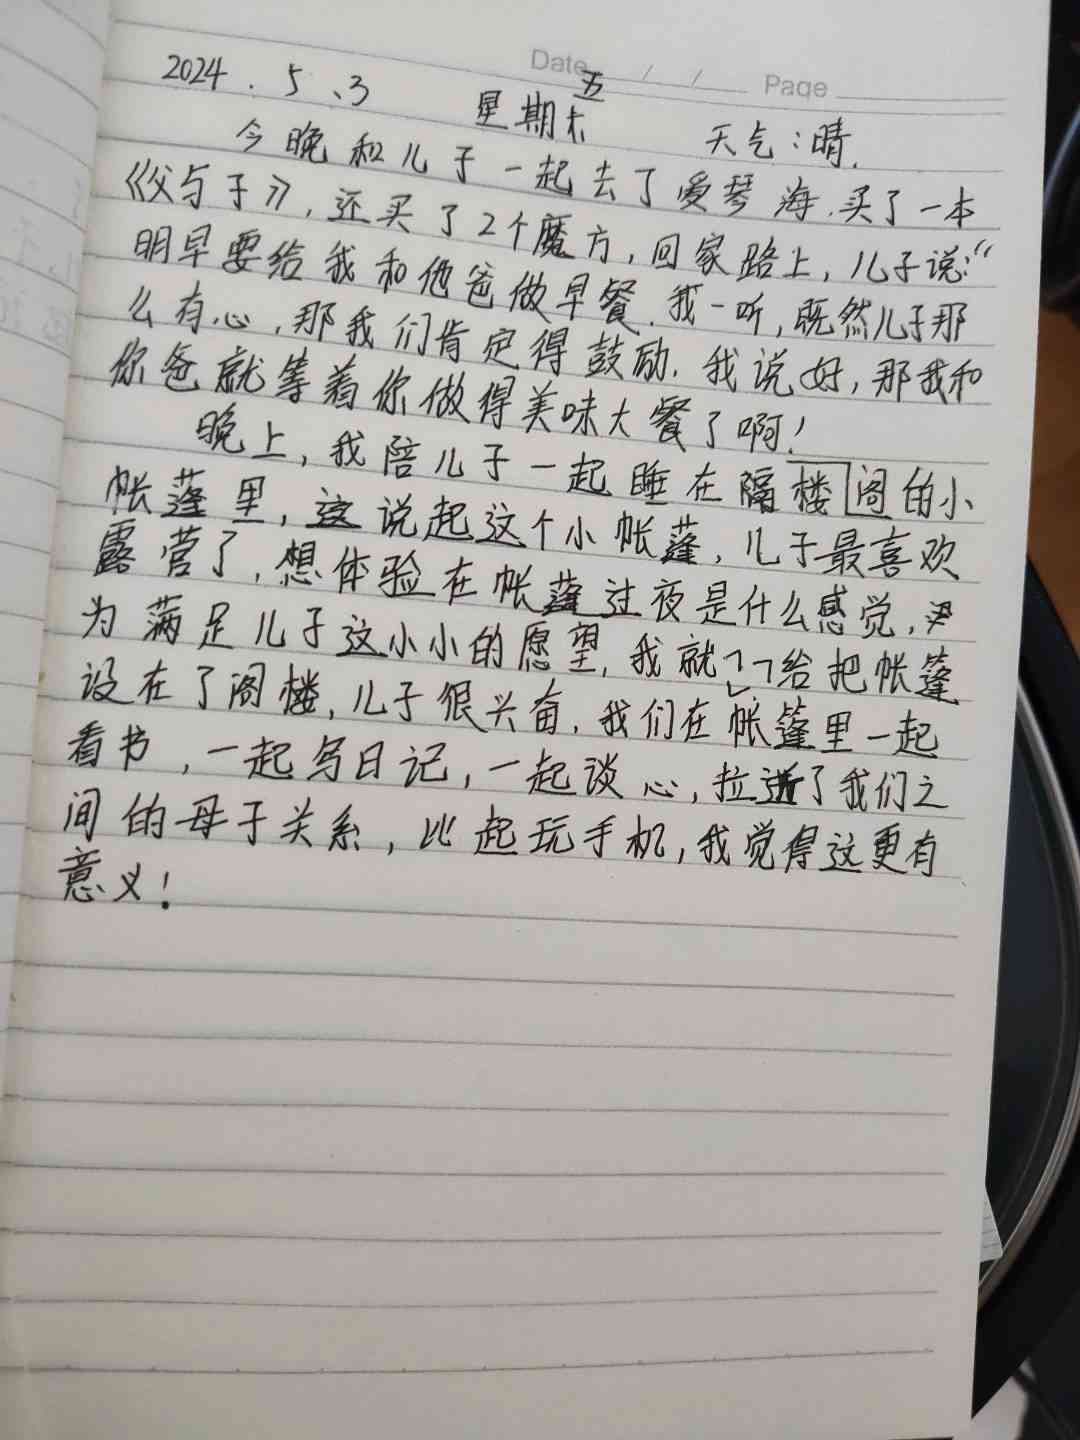 Date / / Page
2024.5、3 星期五 天气:晴.
今晚和儿子一起去了爱琴海.买了一本
《父与子》,还买了2个魔方,回家路上,儿子说:“
明早要给我和他爸做早餐.我一听,既然儿子那
么有心,那我们肯定得鼓励.我说好,那我和
你爸就等着你做得美味大餐了啊!
晚上,我陪儿子一起睡在隔楼阁的小
帐蓬里,这说起这个小帐蓬,儿子最喜欢
露营了,想体验在帐蓬过夜是什么感觉,
为满足儿子这小小的愿望,我就给把帐蓬
设在了阁楼,儿子很兴奋,我们在帐蓬里一起
看书,一起写日记,一起谈心,拉进了我们之
间的母子关系,比起玩手机,我觉得这更有
意义!